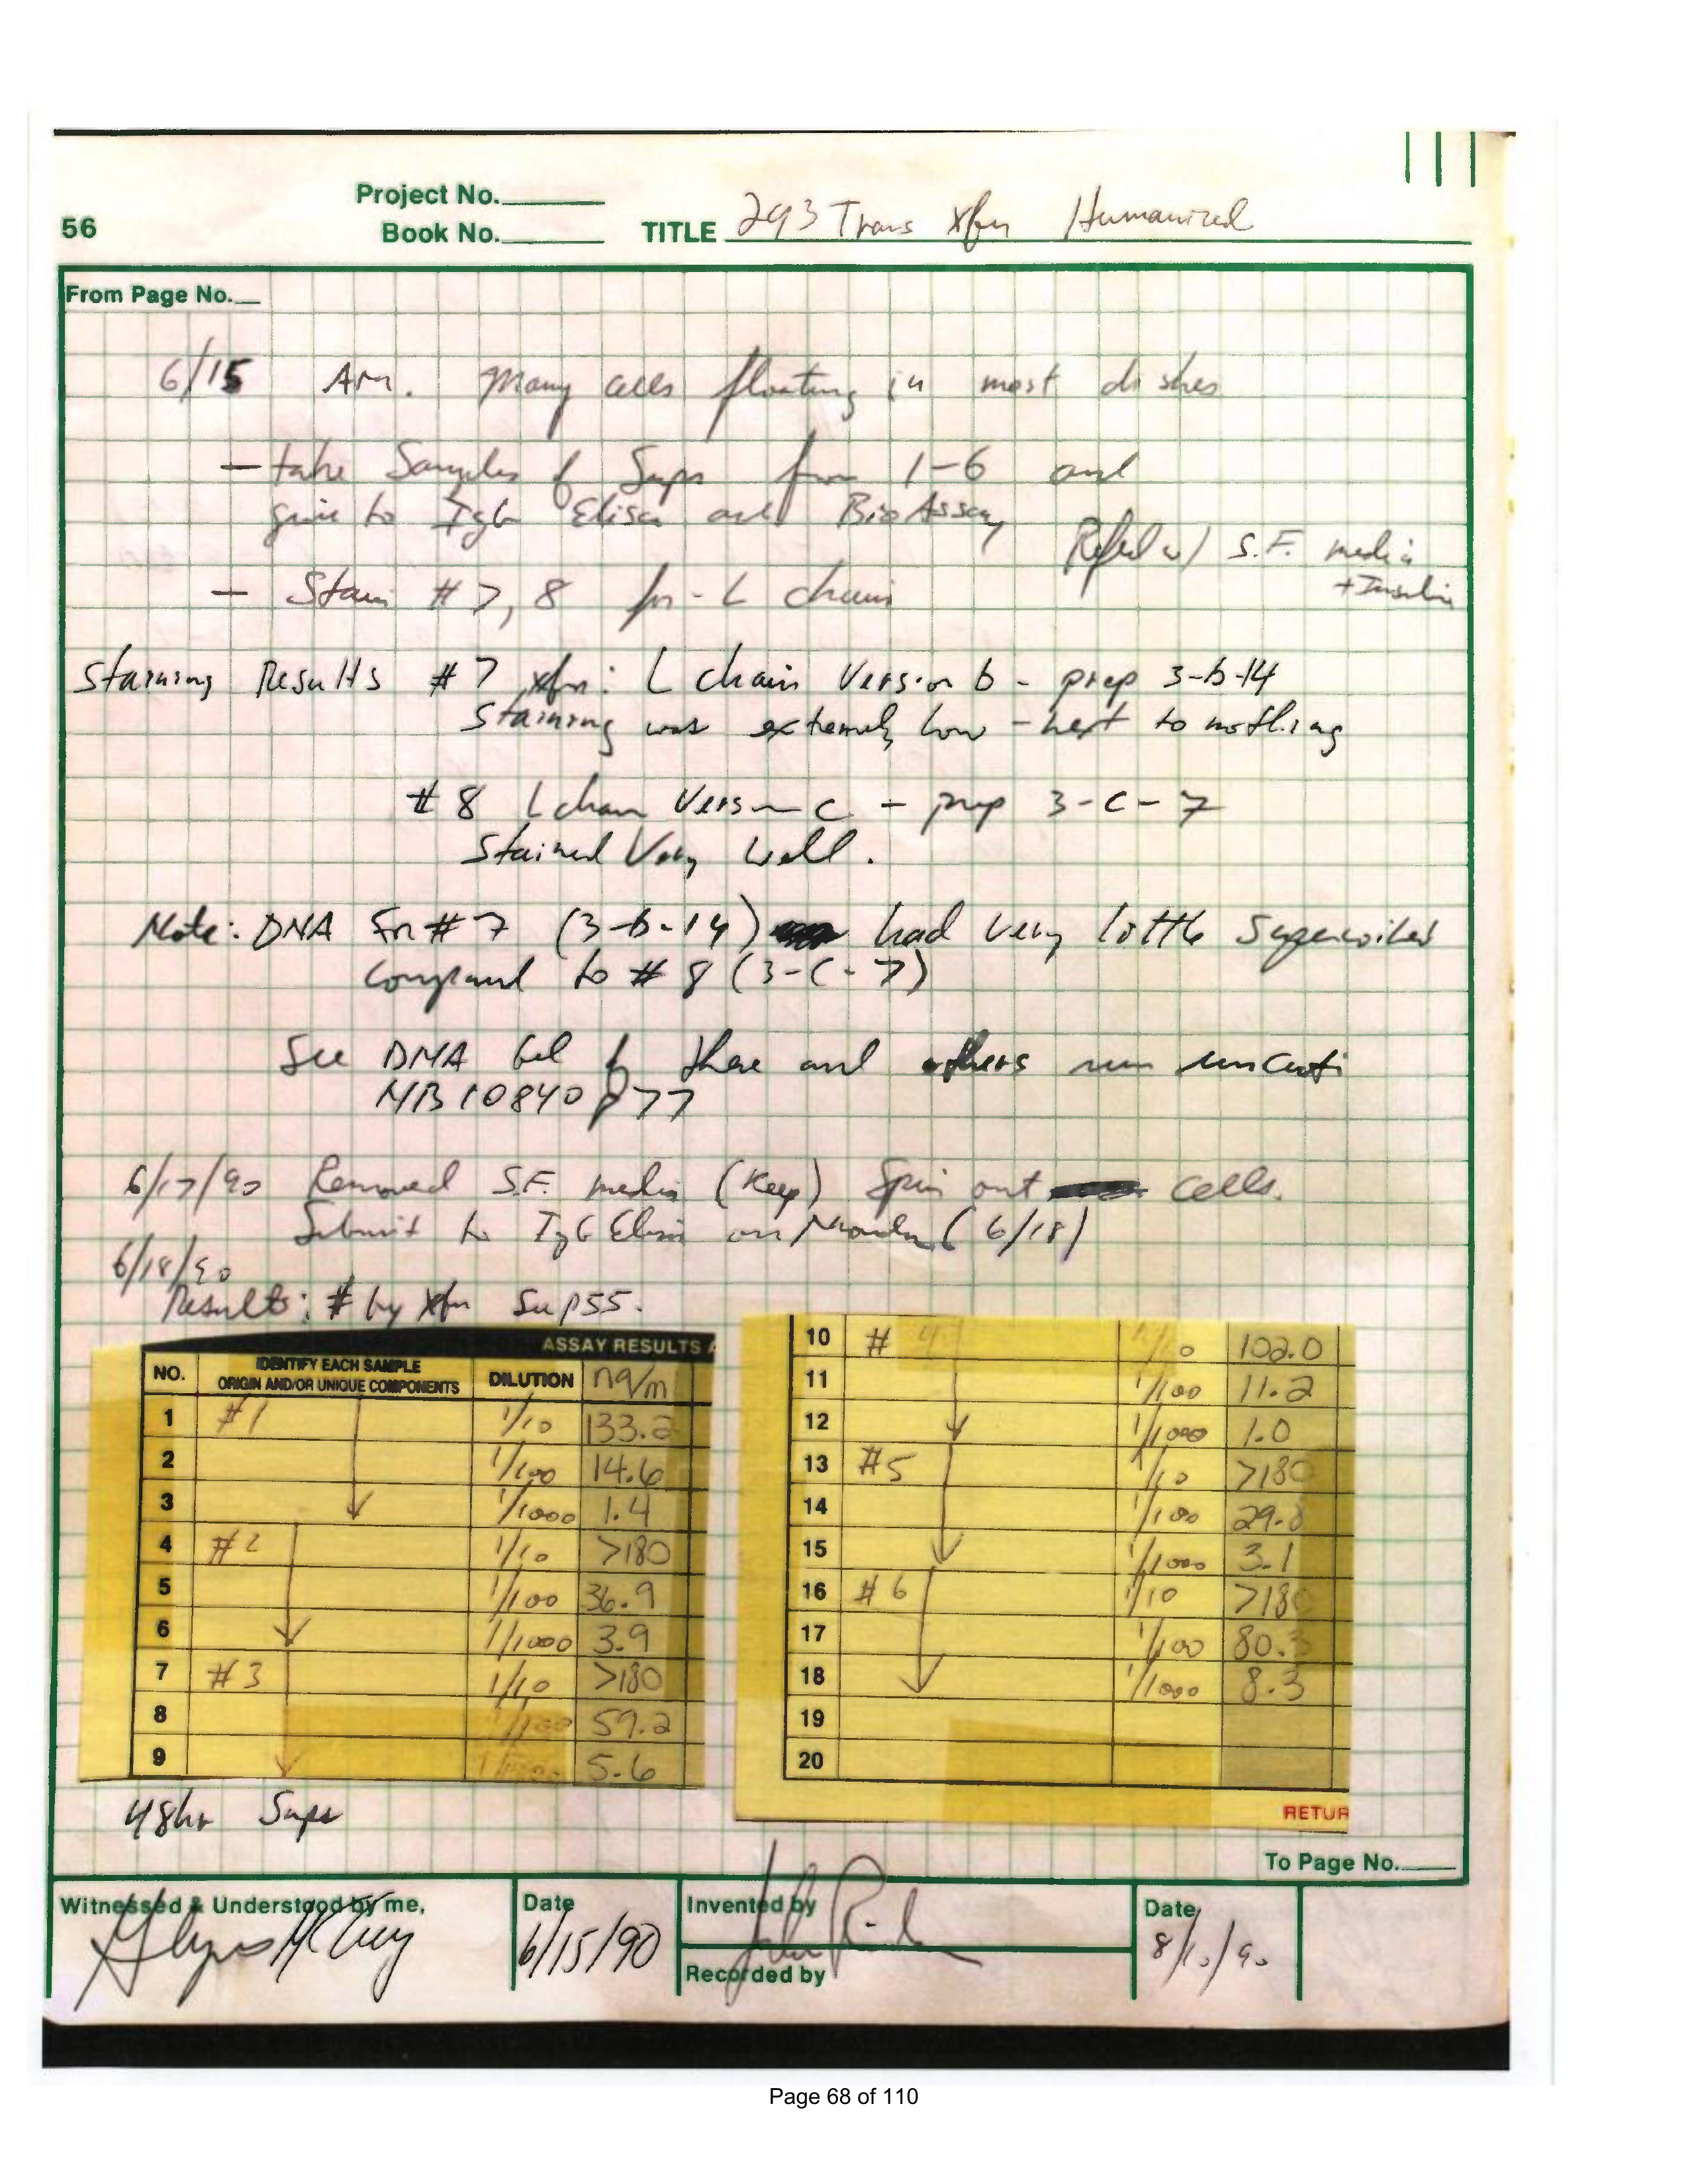 Project No.
56
Book No.
TITLE 293 Trans Xfn Humanized
From Page No.
6/15 AM. Many cells floating in most dishes
- take Samples of Sups from 1-6 and
give to IgG Elisa and BioAssay
Refed w/ S.F. media
+Insulin
- Stain #7, 8 for L chain
Staining Results #7 xfn: L chain Version b - prep 3-b-14
Staining was extremely low - next to nothing
#8 L chain Version c - prep 3-c-7
Stained Very Well.
Note: DNA for #7 (3-b-14) had very little Supercoiled
compared to #8 (3-c-7)
See DNA Gel of these and others run uncut
NB 10840 p77
6/17/90 Removed S.F. media (Keep) Spin out cells.
Submit to IgG Elisa on Monday (6/18)
6/18/90
Results: # by Xfn Sup p55.
ASSAY RESULTS
NO. IDENTIFY EACH SAMPLE ORIGIN AND/OR UNIQUE COMPONENTS DILUTION ng/m
1 #1 1/10 133.2
2 1/100 14.6
3 1/1000 1.4
4 #2 1/10 >180
5 1/100 36.9
6 1/1000 3.9
7 #3 1/10 >180
8 1/100 59.2
9 1/1000 5.6
10 #4 1/10 102.0
11 1/100 11.2
12 1/1000 1.0
13 #5 1/10 >180
14 1/100 29.8
15 1/1000 3.1
16 #6 1/10 >180
17 1/100 80.3
18 1/1000 8.3
19
20
RETUR
48hr Sups
To Page No.
Witnessed & Understood by me,
Date
6/15/90
Invented by
Recorded by
Date
Page 68 of 110